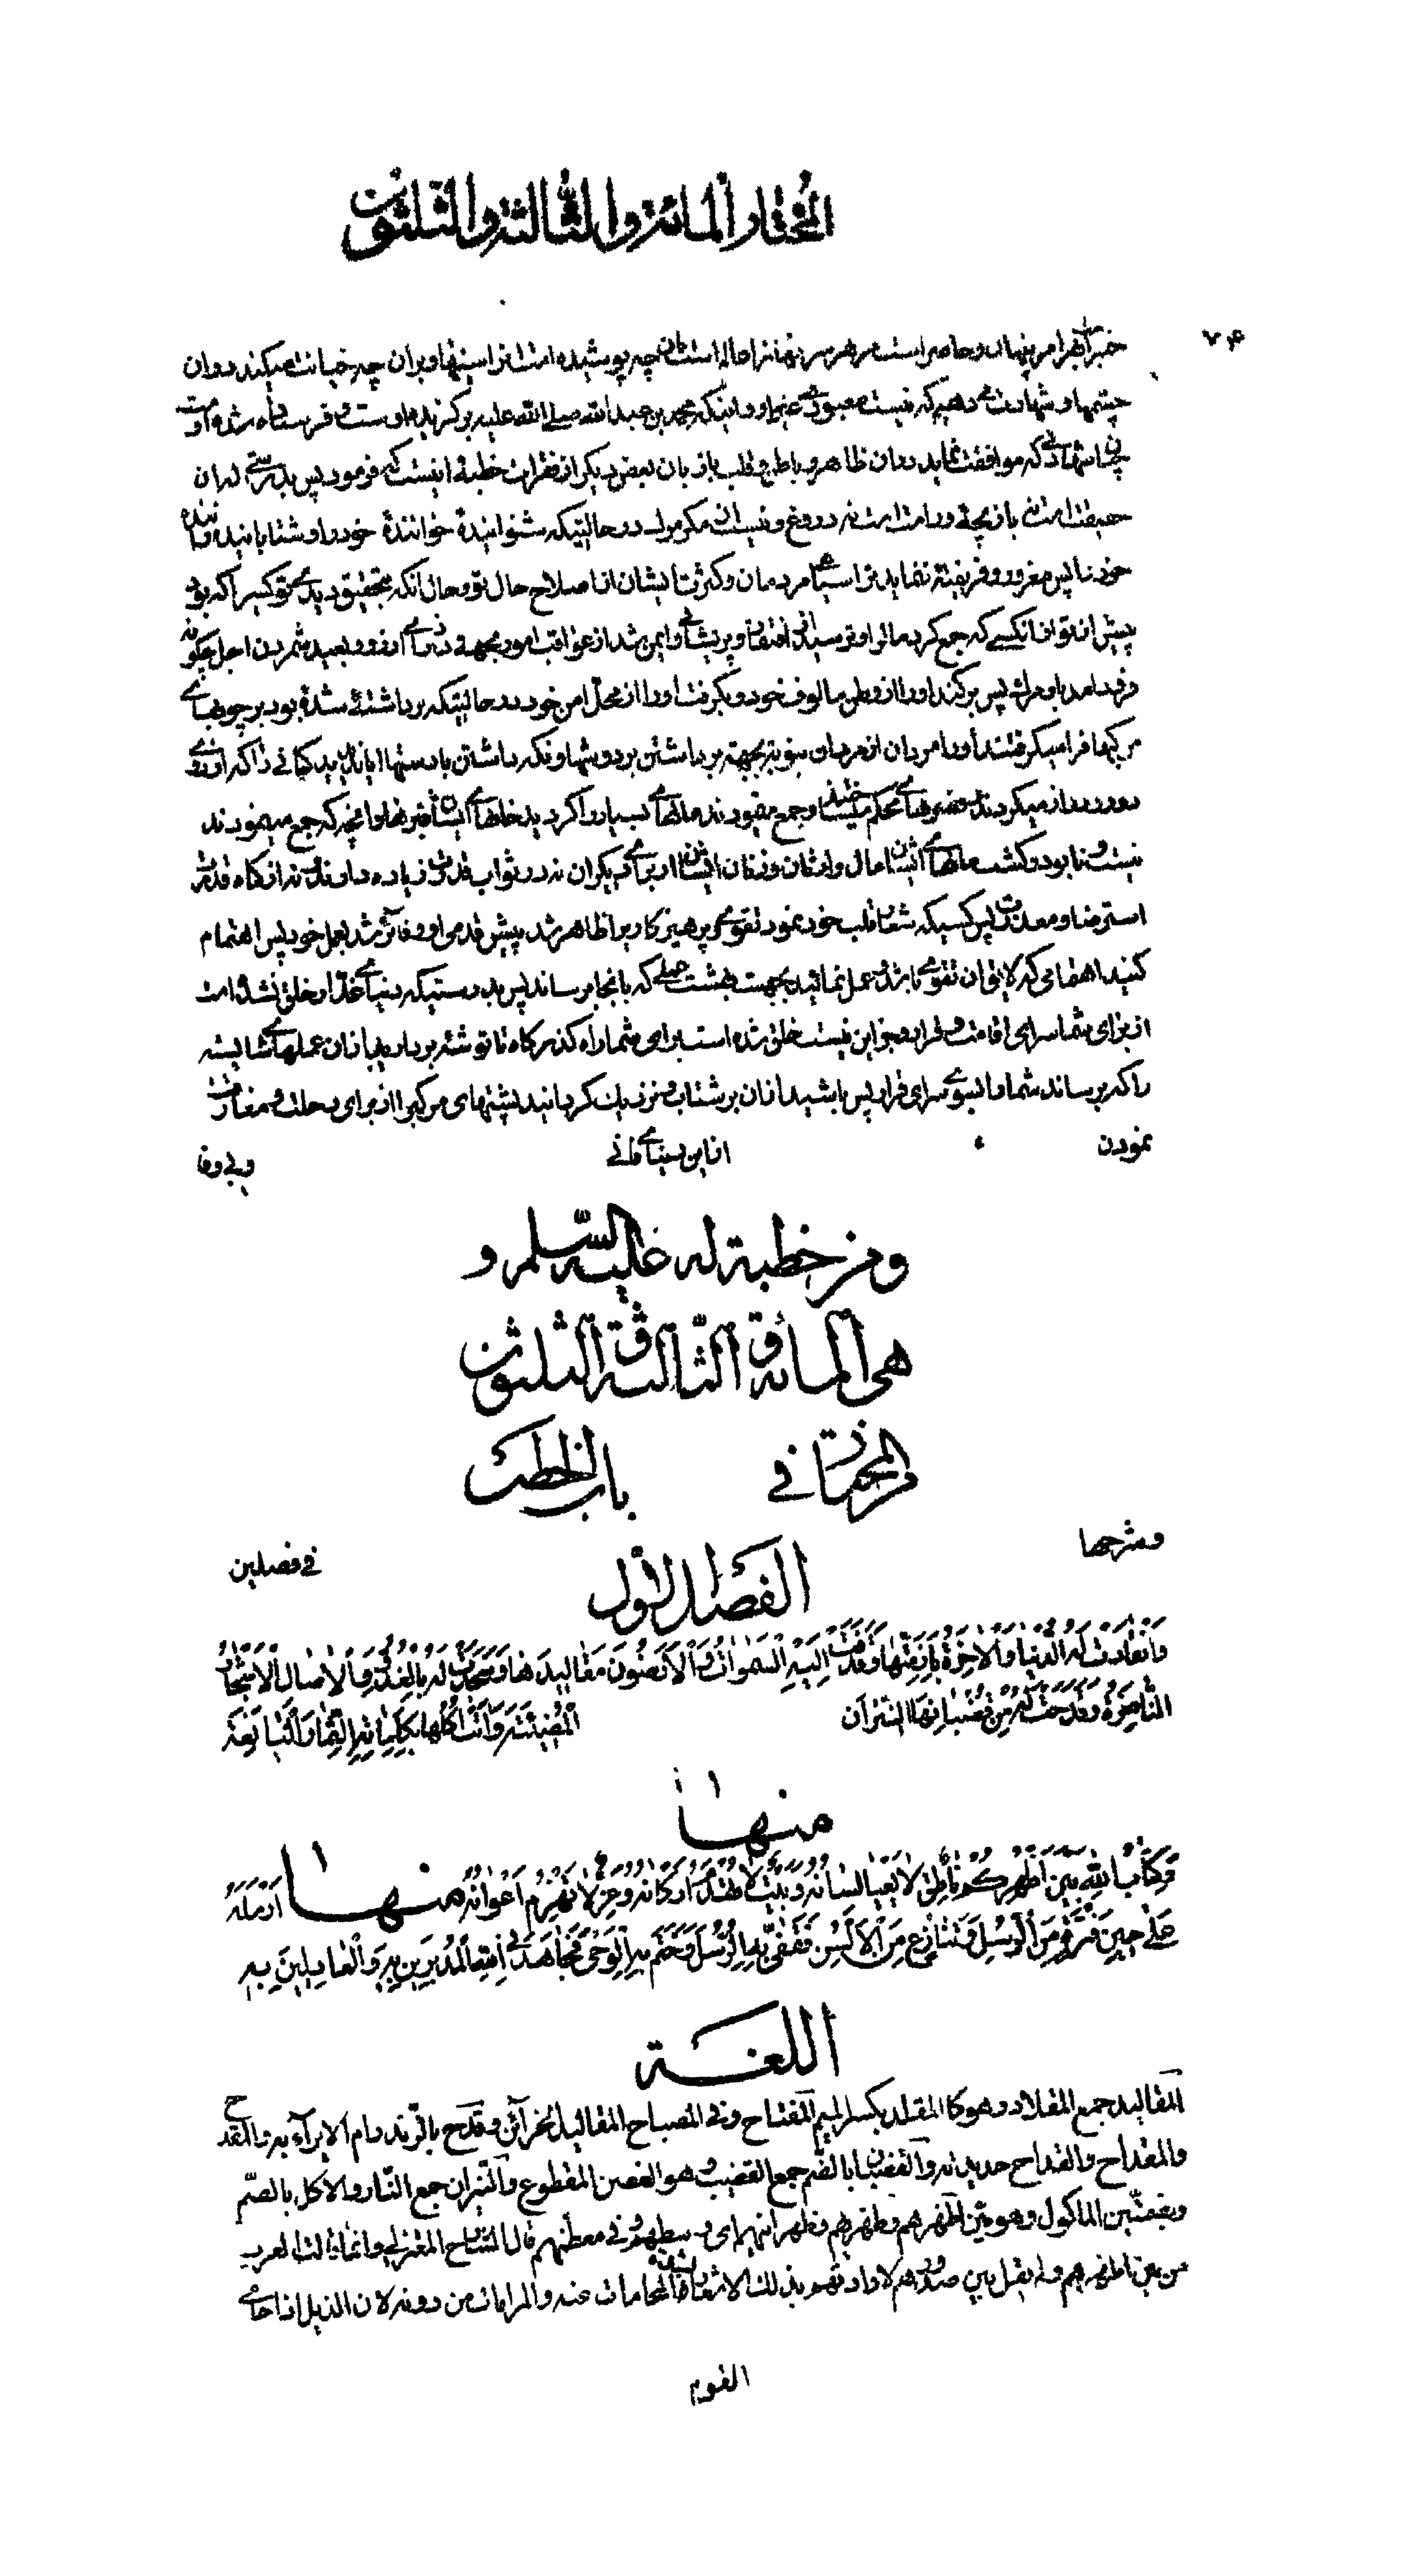 المختار المائة والثالثة والثلثون
۷۴
خبر آبهر امر پنهان و حاضر است مر هر سر نهانرا جه پوشیده است انرا سینها و بر آن چه خیانت میکند در آن
چشمها و شهادت میدهیم که نیست معبودی غیر او و اینکه محمد بن عبد الله صلی الله علیه برگزیده اوست و فرستاده شده اوست
چنان شهادتی که موافقت نماید در آن ظاهر با طن و قلب با زبان بعض دیگر از فقرات خطبه اینست که فرمود پس بدرستی که آن
حقیقت است نه بازیچه و راست است نه دروغ و نیست آن مگر مرك در حالتیکه شنوانیده خواننده خود را و شتابانیده راننده
خود را پس مغرور و فریفته ننماید ترا سیاهی مردمان و کثرت ایشان از اصلاح حال تو و حال آنکه بتحقیق دیدی تو کسیرا که بود
پیش از تو از آنکسی که جمع کرد مال را و ترسید از افتقار و پریشانی و ایمن شد از عواقب امور بجهة درازی ارزو و بعید شمردن اجل چگونه
فرود آمد باو مرك پس برکند او را از وطن مالوف خود و بگرفت او را از محل امن خود در حالتیکه برداشته شده بود بر چوبهای
مرکها فرا میگرفتند او را مردان از مردان بنوبة بجهة برداشتن بر دوشها و نگه داشتن با دستها ایا ندیدید کسانی را که ارزوی
دور و دراز میکردند و قصرهای محکم میساختند و جمع مینمودند مالهای بسیار را گردید خانهای ایشان قبرها و آنچه که جمع مینمودند
نیست و نابود و گشت مالهای ایشان مال وارثان و زنان ایشان از برای دیگران نه در ثواب قدرت زیاده دارند و نه از گناه قدرت
استرضا و معذرت پس کسیکه شعار قلب خود نمود تقوی و پرهیزکاریرا ظاهر شد پیش قدمی او و فائز شد بعمل خود پس اهتمام
کنید اهتمامی که لایق آن تقوی باشد و عمل نمائید بجهت بهشت عملی که بانجا برساند پس بدرستیکه دنیای غدار خلق نشده است
از برای شما سرای اقامت و قرار و جز این نیست خلق شده است برای شما راه گذرگاه تا توشه بردارید از آن عملهای شایسته
را که برساند شما را بسوی سرای قرار پس باشید از آن بر شتاب و نزدیك گردانید پشتهای مرکبرا از برای رحلت و مفارقت
نمودن از این دنیای فانی و بی وفا
ومن خطبة له عليه السّلم و
هى المائة والثّالثة والثلثون
من المختار في باب الخطب
وشرحها في فصلين
الفصل الاوّل
وَانْقادَتْ لَهُ الدُّنْيا وَالْآخِرَةُ بِأَزِمَّتِها وَقَذَفَتْ إِلَيْهِ السَّمٰواتُ وَالْأَرَضُونَ مَقاليدَها وَسَجَدَتْ لَهُ بِالْغُدُوِّ وَالْآصالِ الْأَشْجارُ
النّاضِرَةُ وَقَدَحَتْ لَهُ مِنْ قُضْبانِهَا النّيرانَ الْمُضيئَةَ وَآتَتْ أُكُلَها بِكَلِماتِهِ الثِّمارُ الْيانِعَةُ
منها
وَكِتابُ اللّهِ بَيْنَ أَظْهُرِكُمْ ناطِقٌ لا يَعْيا لِسانُهُ وَبَيْتٌ لا تُهْدَمُ أَرْكانُهُ وَعِزٌّ لا تُهْزَمُ أَعْوانُهُ منها أَرْسَلَهُ
عَلى حينِ فَتْرَةٍ مِنَ الرُّسُلِ وَتَنازُعٍ مِنَ الْأَلْسُنِ فَقَفّى بِهِ الرُّسُلَ وَخَتَمَ بِهِ الْوَحْىَ فَجاهَدَ فِى اللّهِ الْمُدْبِرينَ عَنْهُ وَالْعادِلينَ بِهِ
اللغة
المقاليد جمع المقلاد وهو كالمقلد بكسر الميم المفتاح وفى المصباح المقاليد الخزائن وقدح بالزند رام الايراء به والمقدح
والمقداح والقداح حديدته والقضبان بالضم جمع القضيب وهو الغصن المقطوع والنيران جمع النار والاكل بالضّم
وبضمتين الماكول وهو بين اظهرهم وظهريهم وظهرانيهم اى وسطهم وفي معظمهم قال الشارح المعتزلي وانما قالت العرب
من بين اظهرهم ولم يقل بين صدورهم لارادتهم بذلك الاشعار بشدة المحامات عنه والمرامات من دونه لان النزيل اذا حامى
القوم